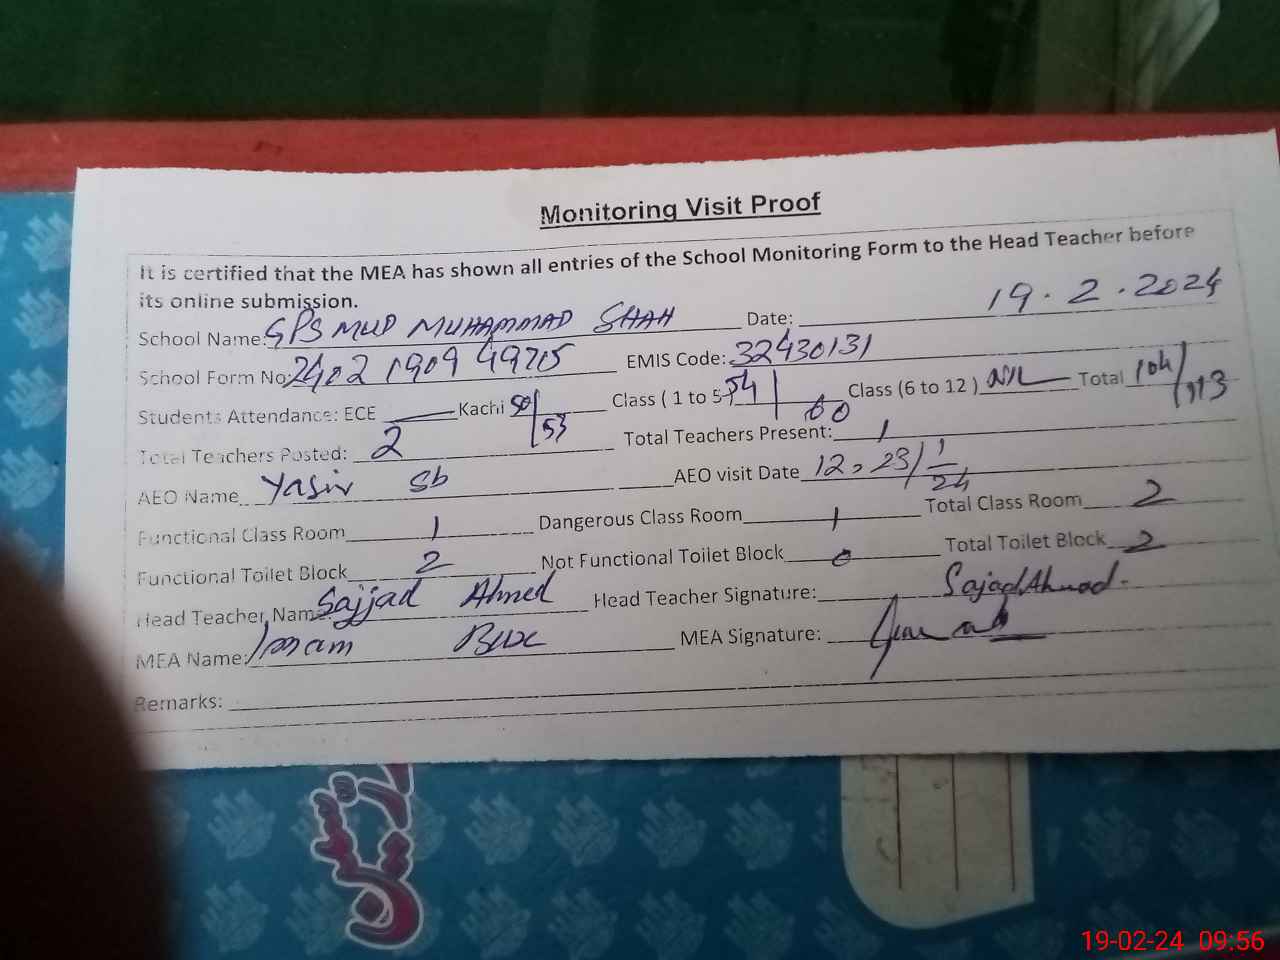 Monitoring Visit Proof
It is certified that the MEA has shown all entries of the School Monitoring Form to the Head Teacher before
its online submission.
School Name: GPS MUD MUHAMMAD SHAH Date: 19.2.2024
School Form No: 2402 1909 49705 EMIS Code: 32430131
Students Attendance: ECE — Kachi 50/53 Class ( 1 to 5 ) 54/60 Class (6 to 12 ) NIL Total 104/113
Total Teachers Posted: 2 Total Teachers Present: 1
AEO Name Yasir Sb AEO visit Date 12, 23/1/24
Functional Class Room 1 Dangerous Class Room 1 Total Class Room 2
Functional Toilet Block 2 Not Functional Toilet Block 0 Total Toilet Block 2
Head Teacher Name Sajjad Ahmed Head Teacher Signature: Sajad Ahmad.
MEA Name: Imam Bux MEA Signature:
Remarks:
19-02-24 09:56